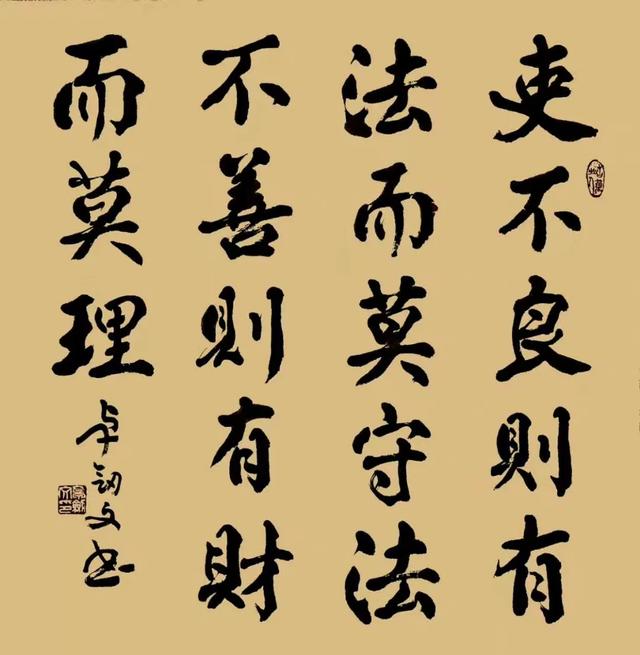 吏不良則有
法而莫守法
不善則有財
而莫理
卓劔文书